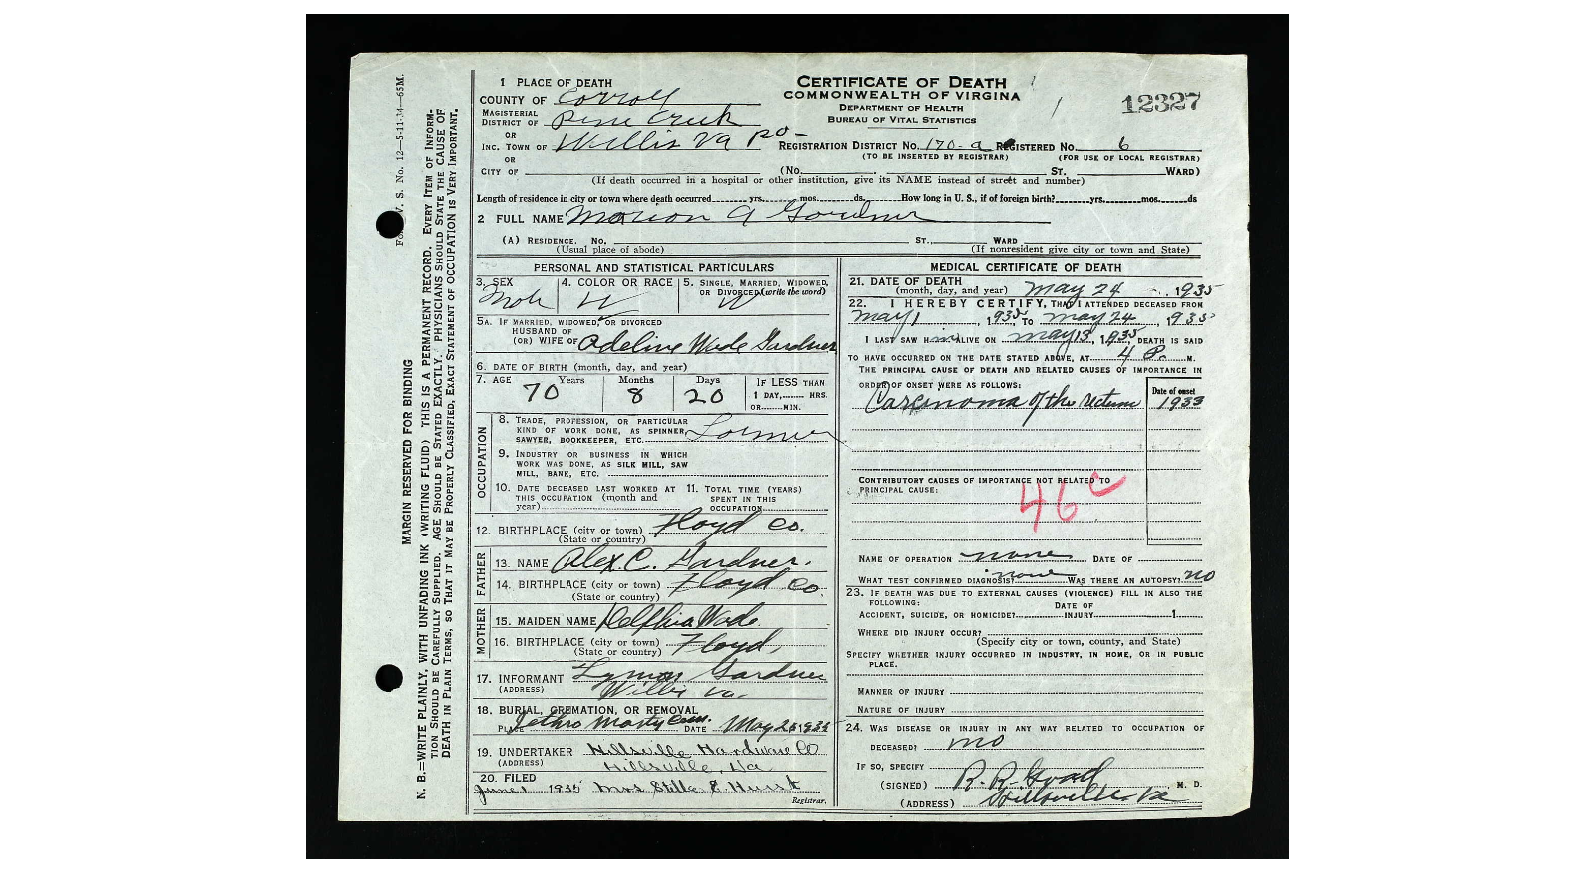 1 PLACE OF DEATH
CERTIFICATE OF DEATH
COMMONWEALTH OF VIRGINIA
DEPARTMENT OF HEALTH
BUREAU OF VITAL STATISTICS
12327
COUNTY OF Carroll
MAGISTERIAL DISTRICT OF Pine Creek
OR
INC. TOWN OF Willis Va PO
REGISTRATION DISTRICT No. 170-a REGISTERED No. 6
(TO BE INSERTED BY REGISTRAR) (FOR USE OF LOCAL REGISTRAR)
OR
CITY OF (No. ST. WARD)
(If death occurred in a hospital or other institution, give its NAME instead of street and number)
Length of residence in city or town where death occurred yrs. mos. ds. How long in U. S., if of foreign birth? yrs. mos. ds
2 FULL NAME Marion A Gardner
(A) RESIDENCE. No. ST., WARD
(Usual place of abode) (If nonresident give city or town and State)
PERSONAL AND STATISTICAL PARTICULARS
3. SEX 4. COLOR OR RACE 5. SINGLE, MARRIED, WIDOWED,
OR DIVORCED (write the word)
W W
5A. IF MARRIED, WIDOWED, OR DIVORCED
HUSBAND OF
(OR) WIFE OF Adeline Wade Gardner
6. DATE OF BIRTH (month, day, and year)
7. AGE Years Months Days IF LESS THAN
70 8 20 1 DAY, HRS.
OR MIN.
OCCUPATION
8. TRADE, PROFESSION, OR PARTICULAR
KIND OF WORK DONE, AS SPINNER,
SAWYER, BOOKKEEPER, ETC. Farmer
9. INDUSTRY OR BUSINESS IN WHICH
WORK WAS DONE, AS SILK MILL, SAW
MILL, BANK, ETC.
10. DATE DECEASED LAST WORKED AT 11. TOTAL TIME (YEARS)
THIS OCCUPATION (month and SPENT IN THIS
year) OCCUPATION
12. BIRTHPLACE (city or town) Floyd Co.
(State or country)
FATHER
13. NAME Alex. C. Gardner.
14. BIRTHPLACE (city or town) Floyd Co.
(State or country)
MOTHER
15. MAIDEN NAME Delphia Wade
16. BIRTHPLACE (city or town) Floyd
(State or country)
17. INFORMANT Lyman Gardner
(ADDRESS) Willis Va.
18. BURIAL, CREMATION, OR REMOVAL
PLACE Jethro Cem. DATE May 1935
19. UNDERTAKER Hillsville Hardware Co
(ADDRESS) Hillsville, Va
20. FILED
June 1 1935 Mrs Stella E Hurst
Registrar.
MEDICAL CERTIFICATE OF DEATH
21. DATE OF DEATH
(month, day, and year) May 24 1935
22. I HEREBY CERTIFY, THAT I ATTENDED DECEASED FROM
May 1, 1935 TO May 24, 1935
I LAST SAW HIM ALIVE ON May 13, 1935, DEATH IS SAID
TO HAVE OCCURRED ON THE DATE STATED ABOVE, AT 4 P. M.
THE PRINCIPAL CAUSE OF DEATH AND RELATED CAUSES OF IMPORTANCE IN
ORDER OF ONSET WERE AS FOLLOWS: Date of onset
Carcinoma of the rectum 1933
CONTRIBUTORY CAUSES OF IMPORTANCE NOT RELATED TO
PRINCIPAL CAUSE:
46c
NAME OF OPERATION none DATE OF
WHAT TEST CONFIRMED DIAGNOSIS? none WAS THERE AN AUTOPSY? no
23. IF DEATH WAS DUE TO EXTERNAL CAUSES (VIOLENCE) FILL IN ALSO THE
FOLLOWING: DATE OF
ACCIDENT, SUICIDE, OR HOMICIDE? INJURY 1
WHERE DID INJURY OCCUR?
(Specify city or town, county, and State)
SPECIFY WHETHER INJURY OCCURRED IN INDUSTRY, IN HOME, OR IN PUBLIC
PLACE.
MANNER OF INJURY
NATURE OF INJURY
24. WAS DISEASE OR INJURY IN ANY WAY RELATED TO OCCUPATION OF
DECEASED? no
IF SO, SPECIFY
(SIGNED) R. R. Goad M. D.
(ADDRESS) Hillsville Va
V. S. No. 12—5-11-34—65M.
MARGIN RESERVED FOR BINDING
N. B.—WRITE PLAINLY, WITH UNFADING INK (WRITING FLUID) THIS IS A PERMANENT RECORD. EVERY ITEM OF INFORM-
TION SHOULD BE CAREFULLY SUPPLIED. AGE SHOULD BE STATED EXACTLY. PHYSICIANS SHOULD STATE THE CAUSE OF
DEATH IN PLAIN TERMS, SO THAT IT MAY BE PROPERLY CLASSIFIED. EXACT STATEMENT OF OCCUPATION IS VERY IMPORTANT.